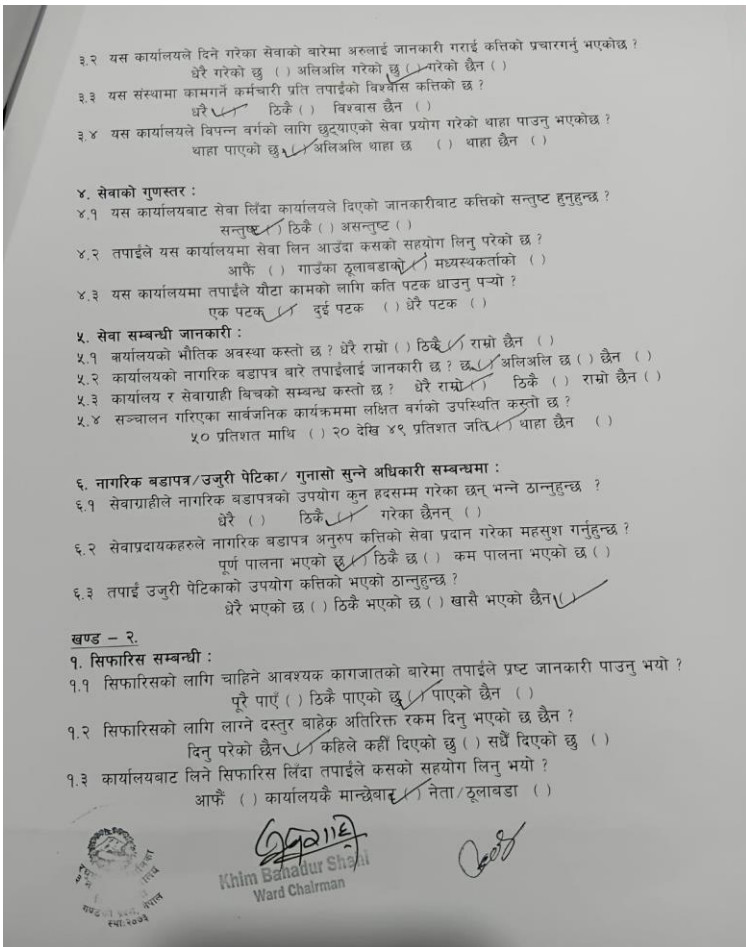 ३.२ यस कार्यालयले दिने गरेका सेवाको बारेमा अरुलाई जानकारी गराई कत्तिको प्रचारगर्नु भएकोछ ?
धेरै गरेको छु ( ) अलिअलि गरेको छु (✓) गरेको छैन ( )
३.३ यस संस्थामा कामगर्ने कर्मचारी प्रति तपाईंको विश्वास कत्तिको छ ?
धरै (✓) ठिकै ( ) विश्वास छैन ( )
३.४ यस कार्यालयले विपन्न वर्गको लागि छुट्याएको सेवा प्रयोग गरेको थाहा पाउनु भएकोछ ?
थाहा पाएको छु (✓) अलिअलि थाहा छ ( ) थाहा छैन ( )
४. सेवाको गुणस्तर :
४.१ यस कार्यालयबाट सेवा लिँदा कार्यालयले दिएको जानकारीबाट कत्तिको सन्तुष्ट हुनुहुन्छ ?
सन्तुष्ट (✓) ठिकै ( ) असन्तुष्ट ( )
४.२ तपाईंले यस कार्यालयमा सेवा लिन आउँदा कसको सहयोग लिनु परेको छ ?
आफैं ( ) गाउँका ठूलाबडाको (✓) मध्यस्थकर्ताको ( )
४.३ यस कार्यालयमा तपाईंले यौटा कामको लागि कति पटक धाउनु पऱ्यो ?
एक पटक (✓) दुई पटक ( ) धेरै पटक ( )
५. सेवा सम्बन्धी जानकारी :
५.१ कार्यालयको भौतिक अवस्था कस्तो छ ? धेरै राम्रो ( ) ठिकै (✓) राम्रो छैन ( )
५.२ कार्यालयको नागरिक बडापत्र बारे तपाईंलाई जानकारी छ ? छ (✓) अलिअलि छ ( ) छैन ( )
५.३ कार्यालय र सेवाग्राही बिचको सम्बन्ध कस्तो छ ? धेरै राम्रो (✓) ठिकै ( ) राम्रो छैन ( )
५.४ सञ्चालन गरिएका सार्वजनिक कार्यक्रममा लक्षित वर्गको उपस्थिति कस्तो छ ?
५० प्रतिशत माथि ( ) २० देखि ४९ प्रतिशत जति (✓) थाहा छैन ( )
६. नागरिक बडापत्र/उजुरी पेटिका/ गुनासो सुन्ने अधिकारी सम्बन्धमा :
६.१ सेवाग्राहीले नागरिक बडापत्रको उपयोग कुन हदसम्म गरेका छन् भन्ने ठान्नुहुन्छ ?
धेरै ( ) ठिकै (✓) गरेका छैनन् ( )
६.२ सेवाप्रदायकहरुले नागरिक बडापत्र अनुरुप कत्तिको सेवा प्रदान गरेका महसुश गर्नुहुन्छ ?
पूर्ण पालना भएको छु (✓) ठिकै छ ( ) कम पालना भएको छ ( )
६.३ तपाईं उजुरी पेटिकाको उपयोग कत्तिको भएको ठान्नुहुन्छ ?
धेरै भएको छ ( ) ठिकै भएको छ ( ) खासै भएको छैन (✓)
खण्ड – २.
१. सिफारिस सम्बन्धी :
१.१ सिफारिसको लागि चाहिने आवश्यक कागजातको बारेमा तपाईंले प्रष्ट जानकारी पाउनु भयो ?
पूरै पाएँ ( ) ठिकै पाएको छु (✓) पाएको छैन ( )
१.२ सिफारिसको लागि लाग्ने दस्तुर बाहेक अतिरिक्त रकम दिनु भएको छ छैन ?
दिनु परेको छैन (✓) कहिले कहीं दिएको छु ( ) सधैं दिएको छु ( )
१.३ कार्यालयबाट लिने सिफारिस लिँदा तपाईंले कसको सहयोग लिनु भयो ?
आफैं ( ) कार्यालयकै मान्छेबाट (✓) नेता/ठूलाबडा ( )
Khim Bahadur Shahi
Ward Chairman
नेपाल
स्था:२०७३